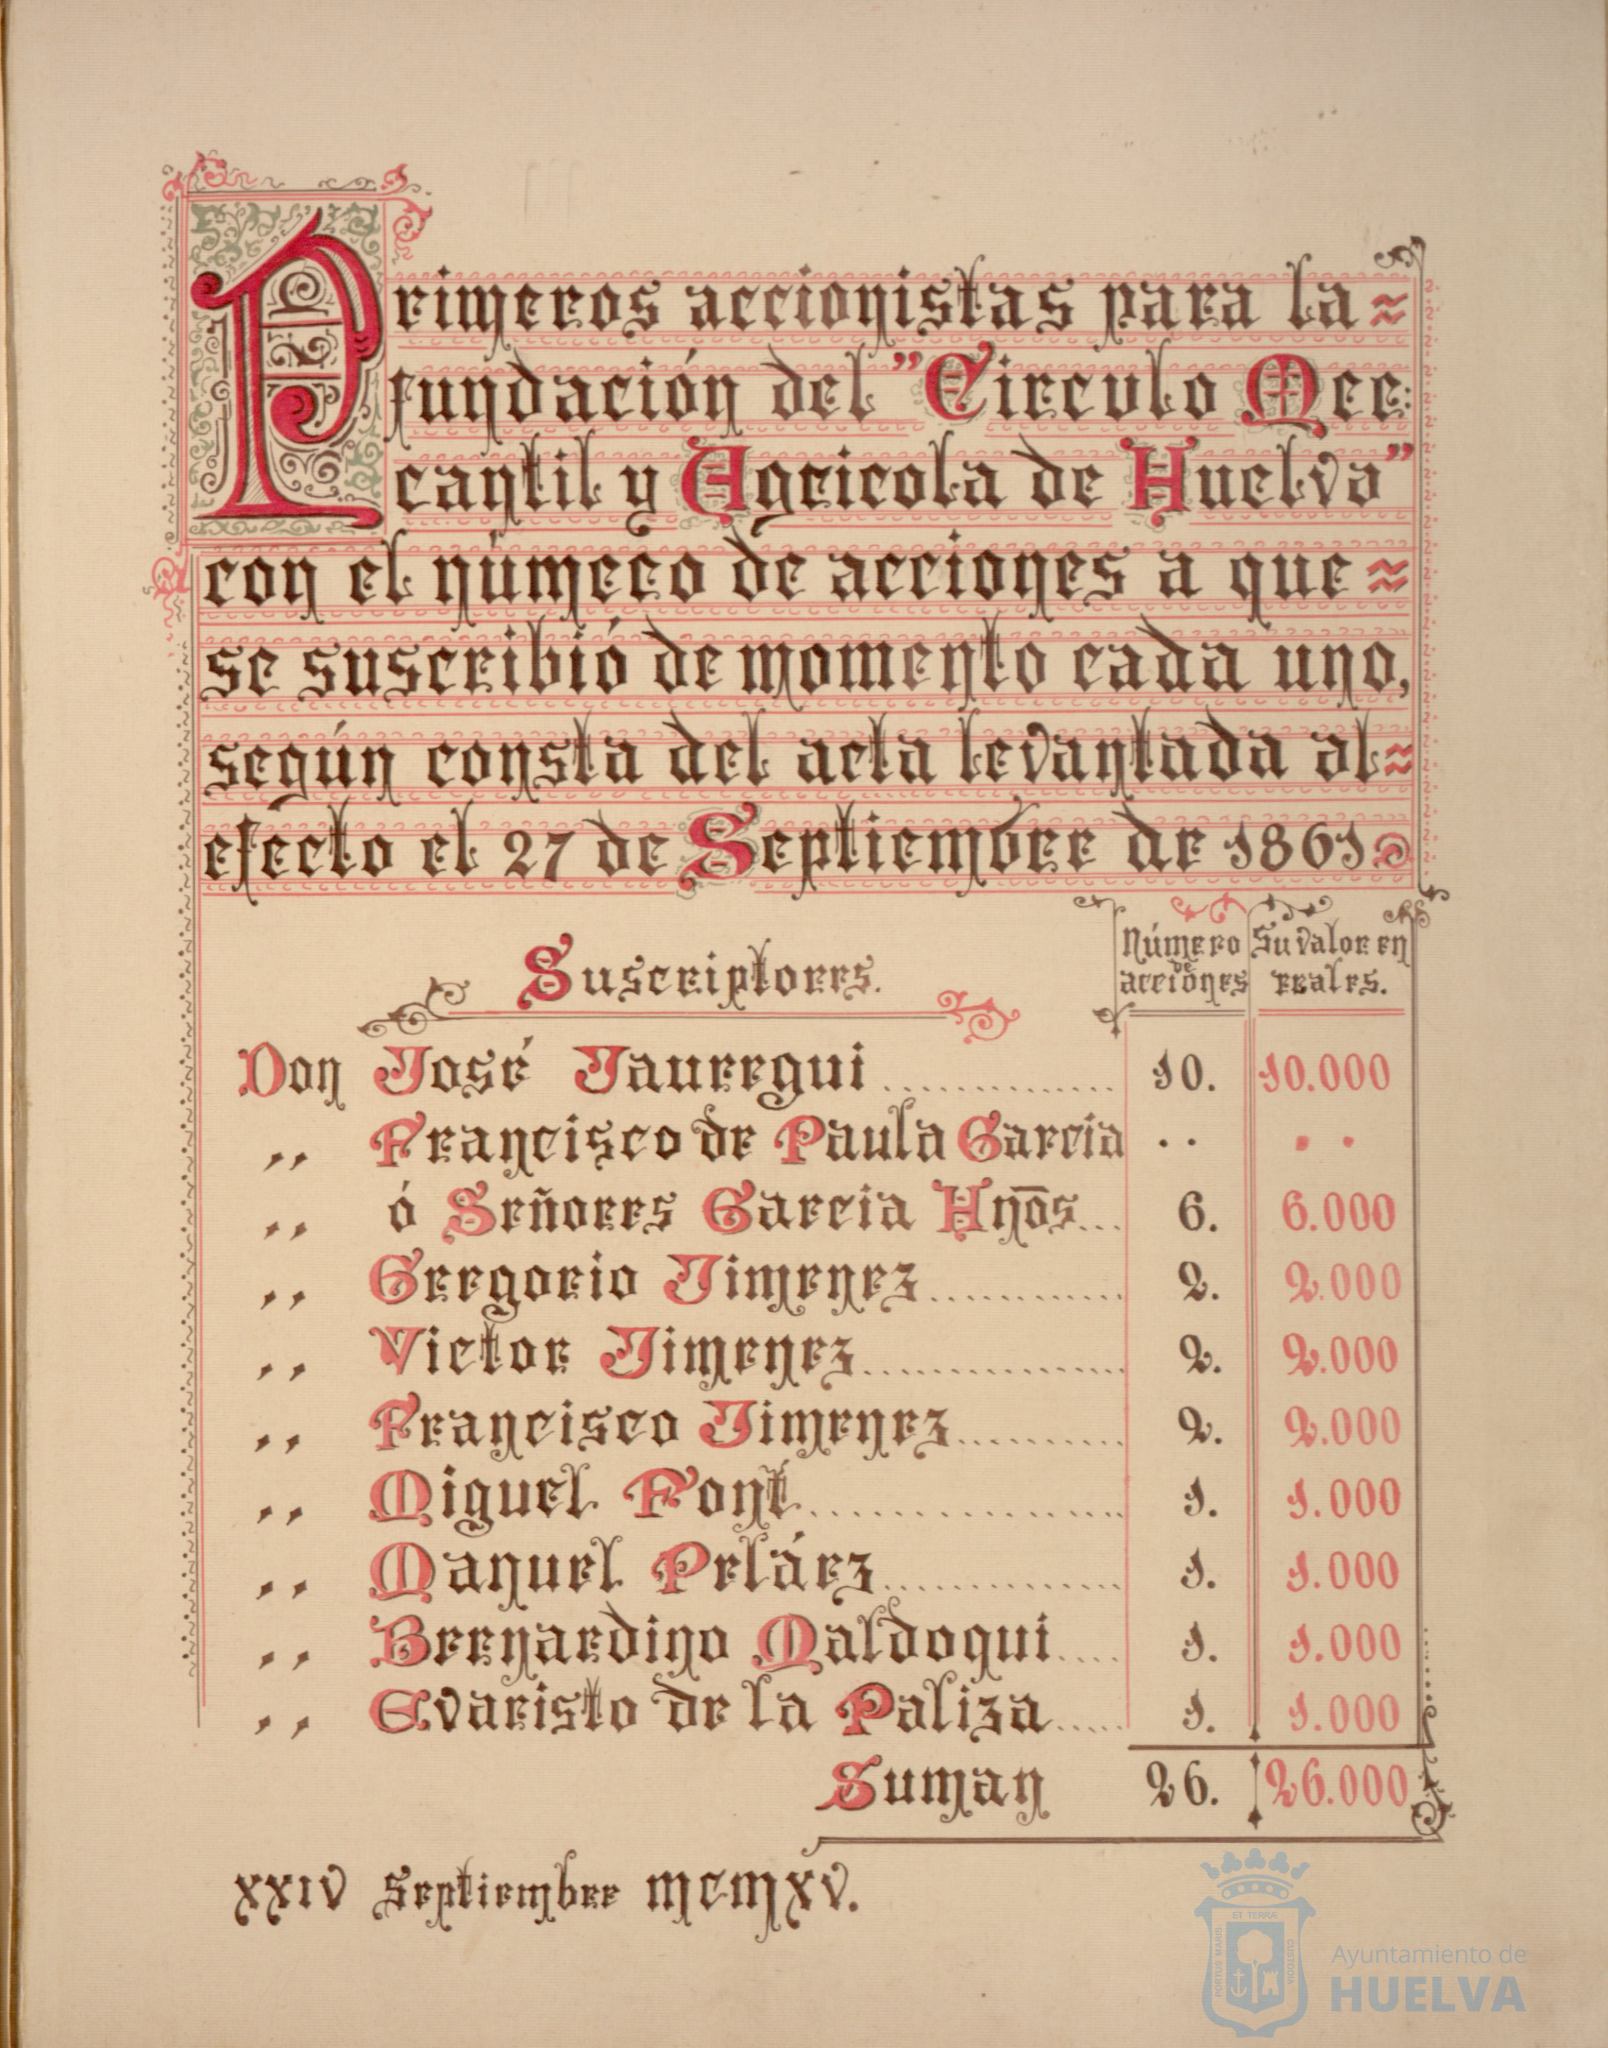 Primeros accionistas para la
fundación del "Circulo Mer:
cantil y Agricola de Huelva"
con el número de acciones a que
se suscribió de momento cada uno,
según consta del acta levantada al
efecto el 27 de Septiembre de 1861
Suscriptores. Número de acciones Su valor en reales.
Don José Jauregui ............. 10. 10.000
,, Francisco de Paula Garcia . . . .
,, ó Señores Garcia Hnōs... 6. 6.000
,, Gregorio Jimenez............ 2. 2.000
,, Victor Jimenez............... 2. 2.000
,, Francisco Jimenez.......... 2. 2.000
,, Miguel Font................ 1. 1.000
,, Manuel Peláez.............. 1. 1.000
,, Bernardino Maldoqui.... 1. 1.000
,, Evaristo de la Paliza..... 1. 1.000
Suman 26. 26.000
XXIV Septiembre MCMXV.
PORTUS MARIS ET TERRÆ CUSTODIA
Ayuntamiento de
HUELVA